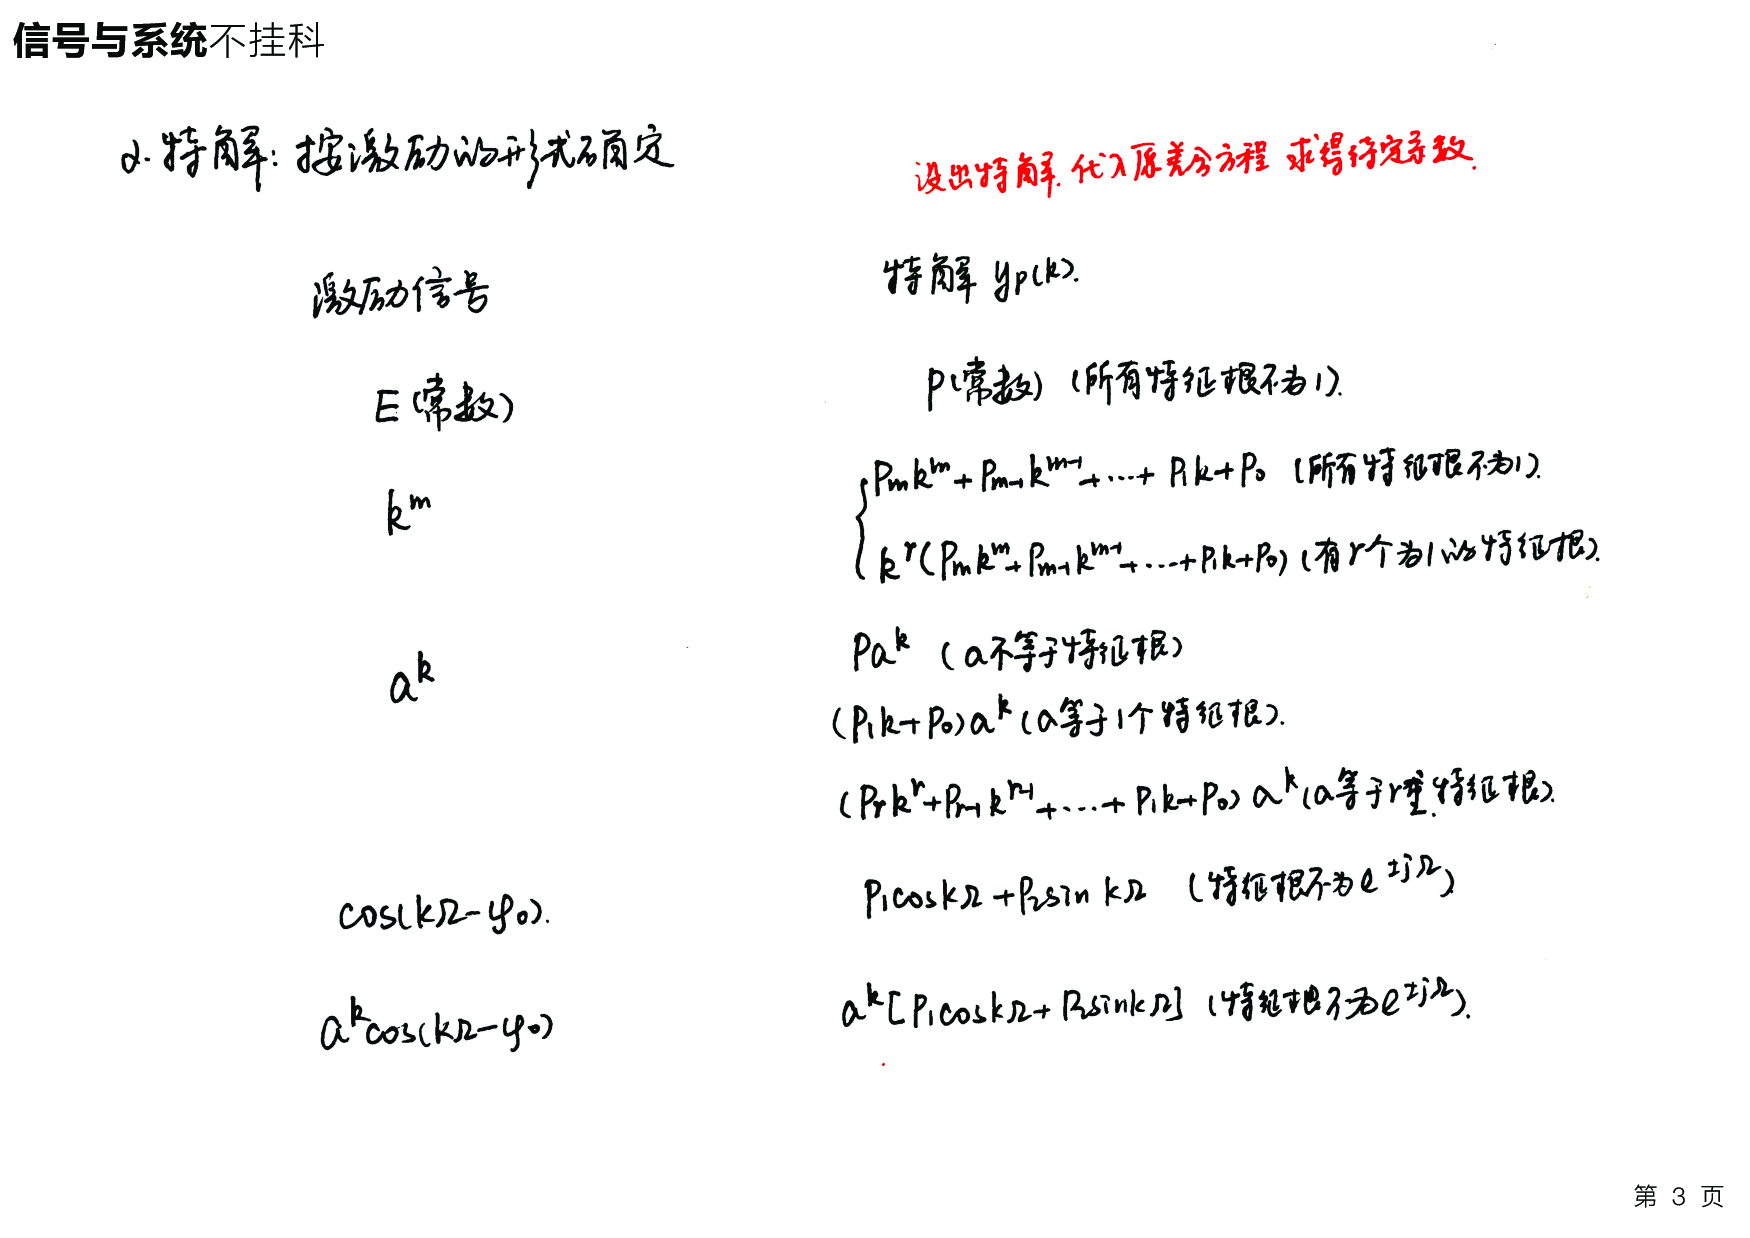 信号与系统不挂科
d. 特解: 按激励的形式确定
设出特解.代入原差分方程 求得待定系数.
激励信号 特解 yp(k).
E(常数) P(常数) (所有特征根不为1).
k^m { Pmk^m + Pm-1k^m-1 + ... + P1k + P0 (所有特征根不为1).
k^r(Pmk^m + Pm-1k^m-1 + ... + P1k + P0) (有r个为1的特征根).
a^k Pa^k (a不等于特征根)
(P1k + P0)a^k (a等于1个特征根).
(Prk^r + Pr-1k^r-1 + ... + P1k + P0) a^k (a等于r重特征根).
cos(kΩ-φ0). P1coskΩ + P2sin kΩ (特征根不为e^±jΩ)
a^kcos(kΩ-φ0) a^k[P1coskΩ + P2sinkΩ] (特征根不为e^±jΩ).
第 3 页